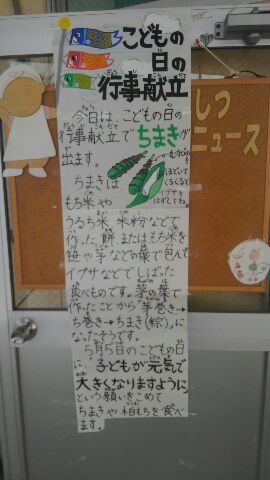 こどもの
日の
行事献立
今日は、こどもの日の
行事献立でちまきが
出ます。
ちまきは
もち米や
うるち米、米粉などで
作った餅またはもち米を
笹や芋などの葉で包んで
イグサなどでしばった
食べものです。茅の葉で
作ったことから茅巻き→
ち巻き→ちまき(粽)に
なったそうです。
5月5日のこどもの日
に、子どもが元気で
大きくなりますように
という願いをこめて
ちまきや柏もちを食べ
ます。
ほどいて
くるくると
イグサを
はずしてね。
しつ
ニュース